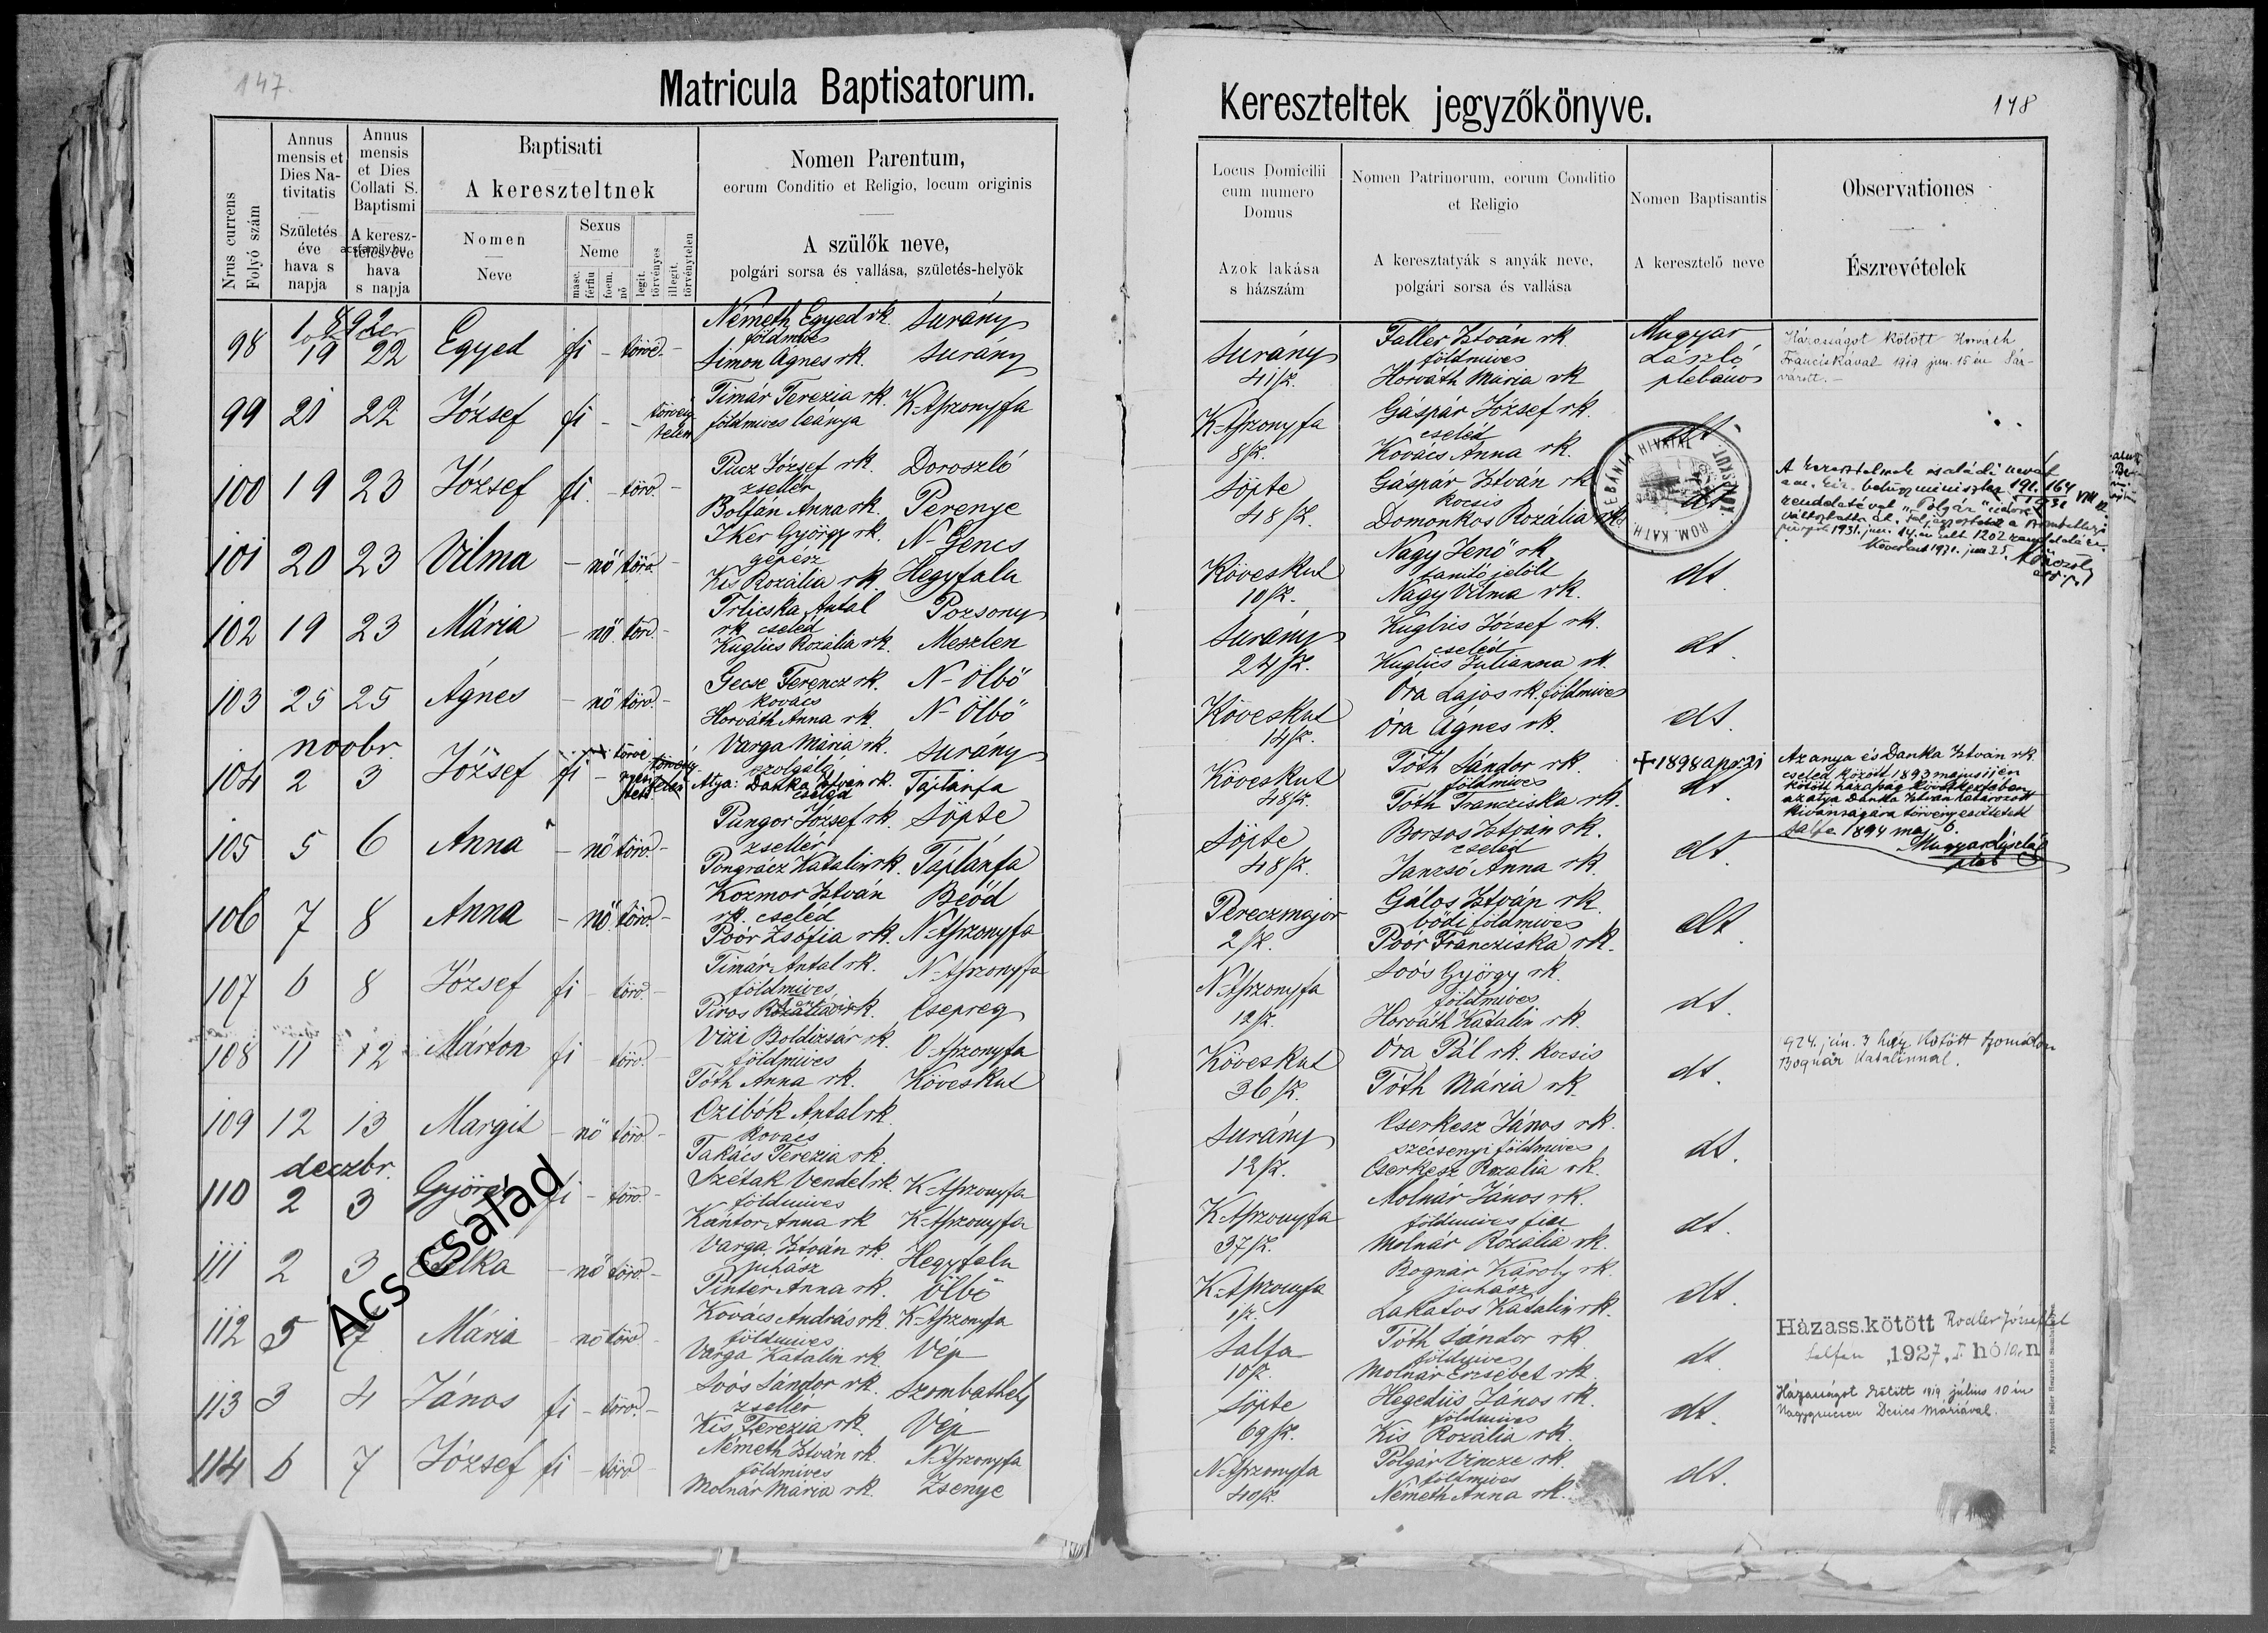 147.
Matricula Baptisatorum.
Nrus currens
Folyó szám
Annus
mensis et
Dies Na-
tivitatis
Születés
éve
hava s
napja
Annus
mensis
et Dies
Collati S.
Baptismi
A keresz-
telés éve
hava
s napja
acsfamily.hu
Baptisati
A kereszteltnek
Nomen
Neve
Sexus
Neme
masc.
férfiu
foem.
nő
legit.
törvényes
illegit.
törvénytelen
Nomen Parentum,
eorum Conditio et Religio, locum originis
A szülők neve,
polgári sorsa és vallása, születés-helyök
1892
98 19 22 Egyed fi - törv. -
Németh Egyed rk. Surány
földmives
Simon Ágnes rk. Surány
99 21 22 József fi - - törvény
telen
Timár Terezia rk. K-Aszonyfa
földmives leánya
100 19 23 József fi. - törv. -
Pucz József rk. Doroszló
zsellér
Boltán Anna rk. Perenye
101 20 23 Vilma - nő törv. -
Iker György rk. N-Gencs
gépész
Kis Rozália rk. Hegyfalu
102 19 23 Mária - nő. törv. -
Trlicska Antal Pozsony
rk cseléd
Kuglics Rozália rk. Meszlen
103 25 25 Ágnes - nő törv. -
Gecse Ferencz rk. N-Ölbő
kovács
Horváth Anna rk. N-Ölbő
novbr.
104 2 3 József fi -
Varga Mária rk. Surány
szolgáló
Atya: Danka István rk. Táplánfa
cseléd
105 5 6 Anna - nő törv. -
Pungor József rk. Söpte
zsellér
Pongrácz Katalin rk. Táplánfa
106 7 8 Anna - nő törv. -
Kozmor István Beőd
rk. cseléd
Poór Zsófia rk. N-Aszonyfa
107 6 8 József fi - törv. -
Timár Antal rk. N-Aszonyfa
földmives
Piros rk. Csepreg
108 11 12 Márton fi - törv. -
Vizi Boldizsár rk. U-Aszonyfa
földmives
Tóth Anna rk. Köveskut
109 12 13 Margit - nő törv. -
Czibók Antal rk.
kovács
Takács Terezia rk.
deczbr.
110 2 3 György fi - törv. -
Szétak Vendel rk. K-Aszonyfa
földmives
Kántor Anna rk K-Aszonyfa
111 2 3 Etelka - nő törv. -
Varga István rk. Hegyfalu
juhász
Pintér Anna rk. Ölbő
112 5 7 Mária - nő törv -
Kovács András rk. K-Aszonyfa
földmives
Varga Katalin rk. Vép
113 3 4 János fi - törv. -
Soós Sándor rk. Szombathely
zsellér
Kis Terezia rk. Vép
114 6 7 József fi - törv -
Németh István rk. N-Aszonyfa
földmives
Molnár Mária rk. Zsenye
Ács család
Kereszteltek jegyzőkönyve.
148
Locus Domicilii
cum numero
Domus
Azok lakása
s házszám
Nomen Patrinorum, eorum Conditio
et Religio
A keresztatyák s anyák neve,
polgári sorsa és vallása
Nomen Baptisantis
A keresztelő neve
Observationes
Észrevételek
Surány
41/sz.
Faller István rk.
földmives
Horváth Mária rk
Magyar
László
plebános
Házasságot kötött Horváth
Franciskával 1919 jun. 15 én Sár-
várott. -
K-Aszonyfa
8/sz.
Gáspár József rk.
cseléd
Kovács Anna rk.
dt.
Söpte
48/sz.
Gáspár István rk
kocsis
Domonkos Rozália rk
dt
PLEBANIA HIVATAL KÖVESKUT ROM. KATH.
Köveskut
10/sz.
Nagy Jenő rk.
tanító jelölt
Nagy Vilma rk.
dt.
Surány
24/sz.
Kuglics József rk.
cseléd
Kuglics Julianna rk.
dt.
Köveskut
14/sz.
Óra Lajos rk. földmives
Óra Ágnes rk.
dt.
Köveskut
48/sz.
Tóth Sándor rk.
földmives
Tóth Francziska rk.
✝1898 apr. 21
dt.
Az anya és Danka István rk.
cseléd között 1893 május 11 én
kötött házasság következtében,
az atya Danka István határozott
kivánságára törvényesittetett
Salfa 1894 maj 6.
Magyar László
pleb
Söpte
48/sz.
Borsos István rk.
cseléd
Janzsó Anna rk.
dt.
Pereczmajor
2/sz.
Gálos István rk.
bődi földmives
Poór Francziska rk.
dt.
N-Aszonyfa
12/sz.
Soós György rk.
földmives
Horváth Katalin rk.
dt.
Köveskut
36/sz.
Óra Pál rk. kocsis
Tóth Mária rk.
dt.
924. jún. 3 hàz. kötött
Bognár Katalinnal.
Surány
12/sz.
Cserkesz János rk.
szécsenyi földmives
Cserkesz Rozália rk.
dt.
K-Aszonyfa
37/sz.
Molnár János rk.
földmives fia
Molnár Rozália rk.
dt.
K-Aszonyfa
1/sz.
Bognár Károly rk.
juhász
Lakatos Katalin rk.
dt.
Salfa
10/sz.
Tóth Sándor rk
földmives
Molnár Erzsébet rk.
dt.
Házass.kötött Rodler Józseffel
Salfán ,1927, I. hó 10.n
Söpte
69/sz.
Hegedüs János rk.
földmives
Kis Rozália rk.
dt.
Házasságot kötött 1919 július 10 én
Máriával.
N-Aszonyfa
40/sz.
Polgár Vincze rk.
földmives
Németh Anna rk.
dt.